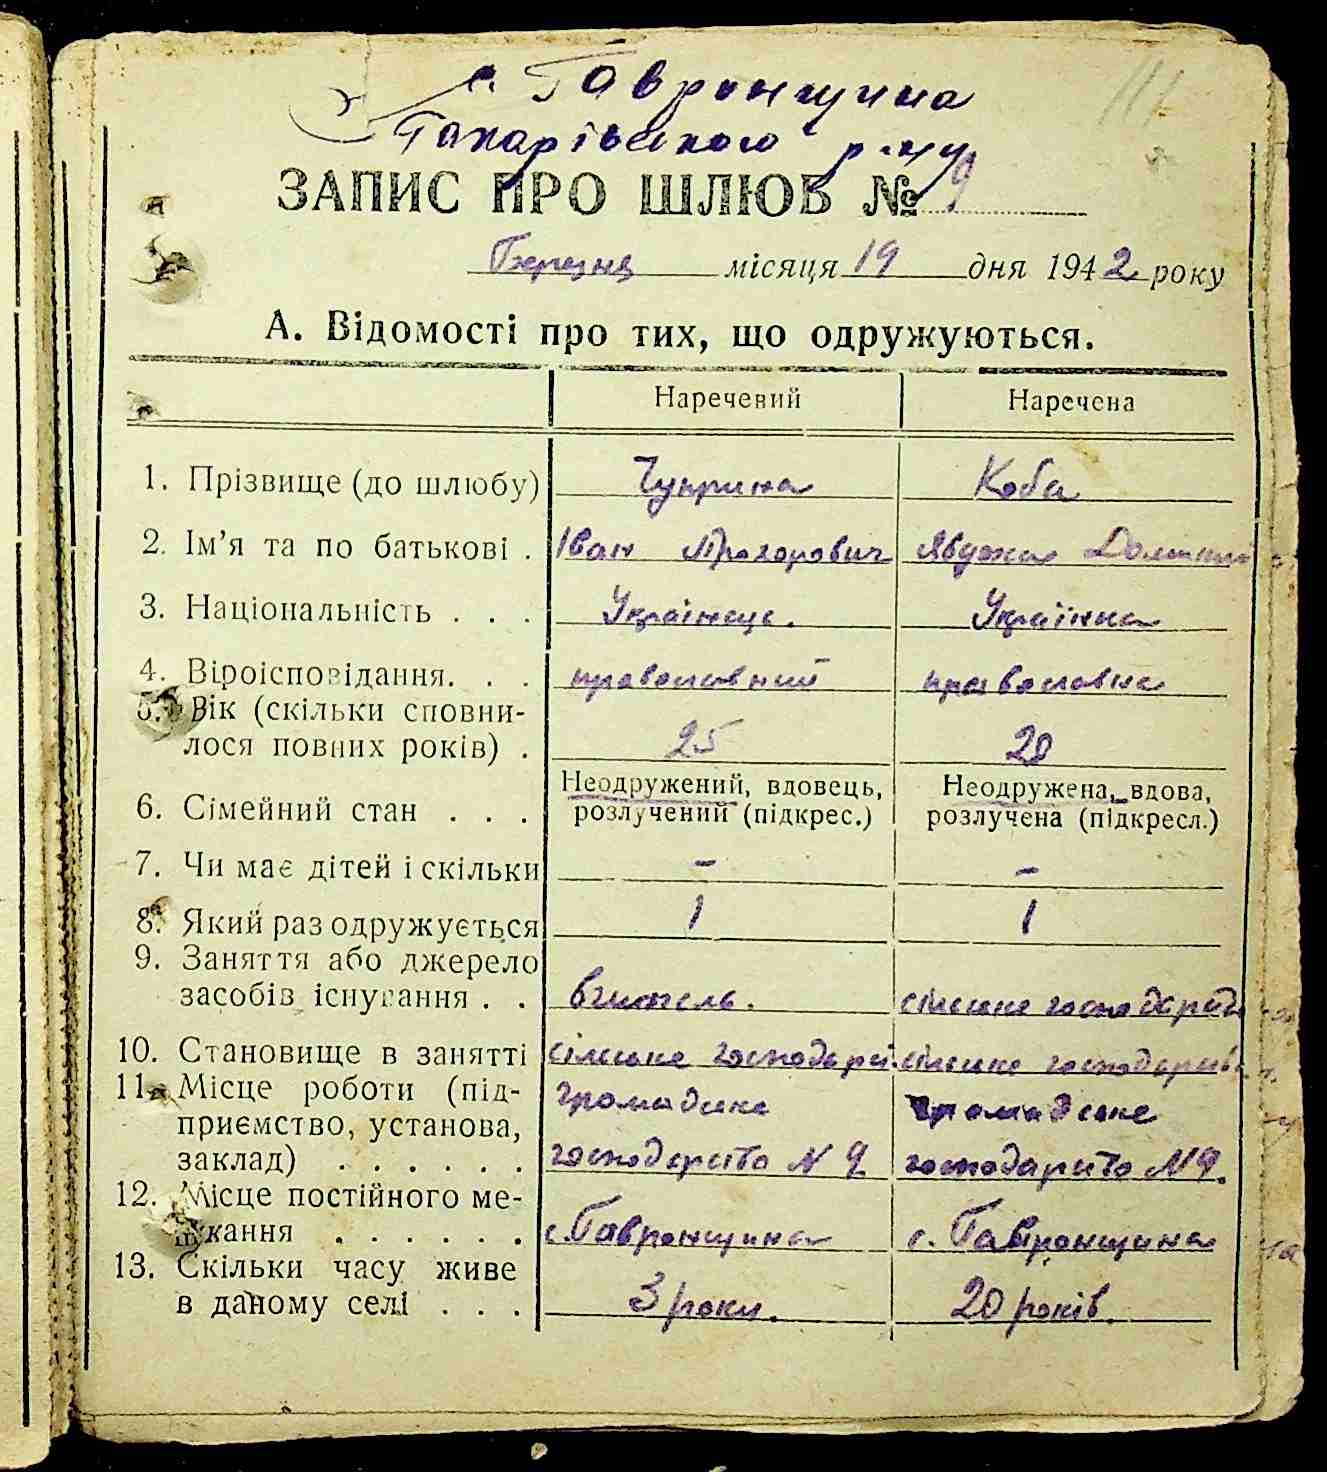 с. Гавронщина
Макарівського р-ну
ЗАПИС ПРО ШЛЮБ № 9
Березня місяця 19 дня 1942 року
А. Відомості про тих, що одружуються.
Наречений Наречена
1. Прізвище (до шлюбу) Чуприна Коба
2. Ім'я та по батькові . Іван Прохорович Явдоха
3. Національність . . . Українець. Українка
4. Віроісповідання. . . православний православна
5. Вік (скільки сповни-
лося повних років) . 25 20
6. Сімейний стан . . . Неодружений, вдовець, розлучений (підкрес.) Неодружена, вдова, розлучена (підкресл.)
7. Чи має дітей і скільки – –
8. Який раз одружується 1 1
9. Заняття або джерело
засобів існування . . вчитель. сільське господарство
10. Становище в занятті сільське господар. сільське господарство
11. Місце роботи (під- громадське громадське
приємство, установа,
заклад) . . . . . . господарство N 9 господарство N 9.
12. Місце постійного ме-
шкання . . . . . . с. Гавронщина с. Гавронщина
13. Скільки часу живе
в даному селі . . . 3 роки. 20 років.